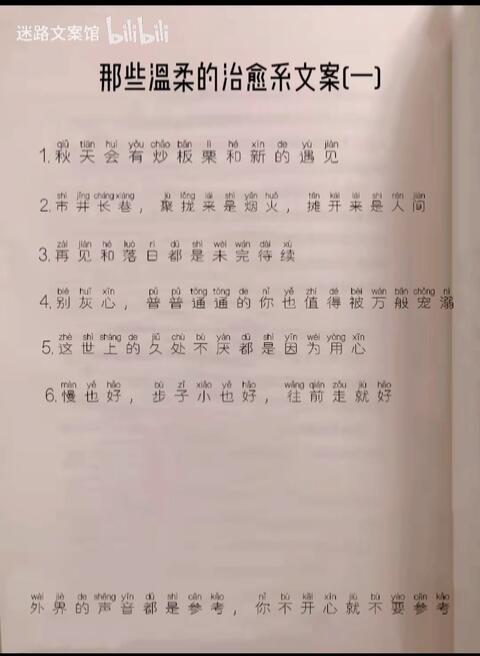 迷路文案馆 bilibili
那些溫柔的治愈系文案(一)
qiū tiān huì yǒu chǎo bǎn lì hé xīn de yù jiàn
1.秋天会有炒板栗和新的遇见
shì jǐng cháng xiàng, jù lǒng lái shì yān huǒ, tān kāi lái shì rén jiān
2.市井长巷，聚拢来是烟火，摊开来是人间
zài jiàn hé luò rì dū shì wèi wán dài xù
3.再见和落日都是未完待续
bié huī xīn, pǔ pǔ tōng tōng de nǐ yě zhí dé bèi wàn bān chǒng nì
4.别灰心，普普通通的你也值得被万般宠溺
zhè shì shàng de jiǔ chù bù yàn dū shì yīn wèi yòng xīn
5.这世上的久处不厌都是因为用心
màn yě hǎo, bù zǐ xiǎo yě hǎo, wǎng qián zǒu jiù hǎo
6.慢也好，步子小也好，往前走就好
wài jiè de shēng yīn dū shì cān kǎo, nǐ bù kāi xīn jiù bù yào cān kǎo
外界的声音都是参考，你不开心就不要参考